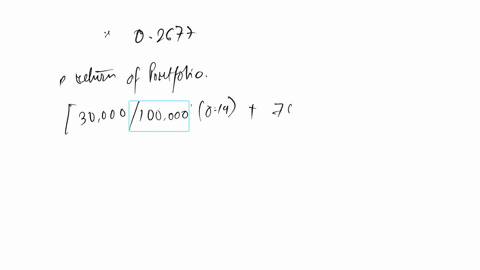 = 0.2677
return of Portfolio.
[30,000/100,000 (0.14) + 70